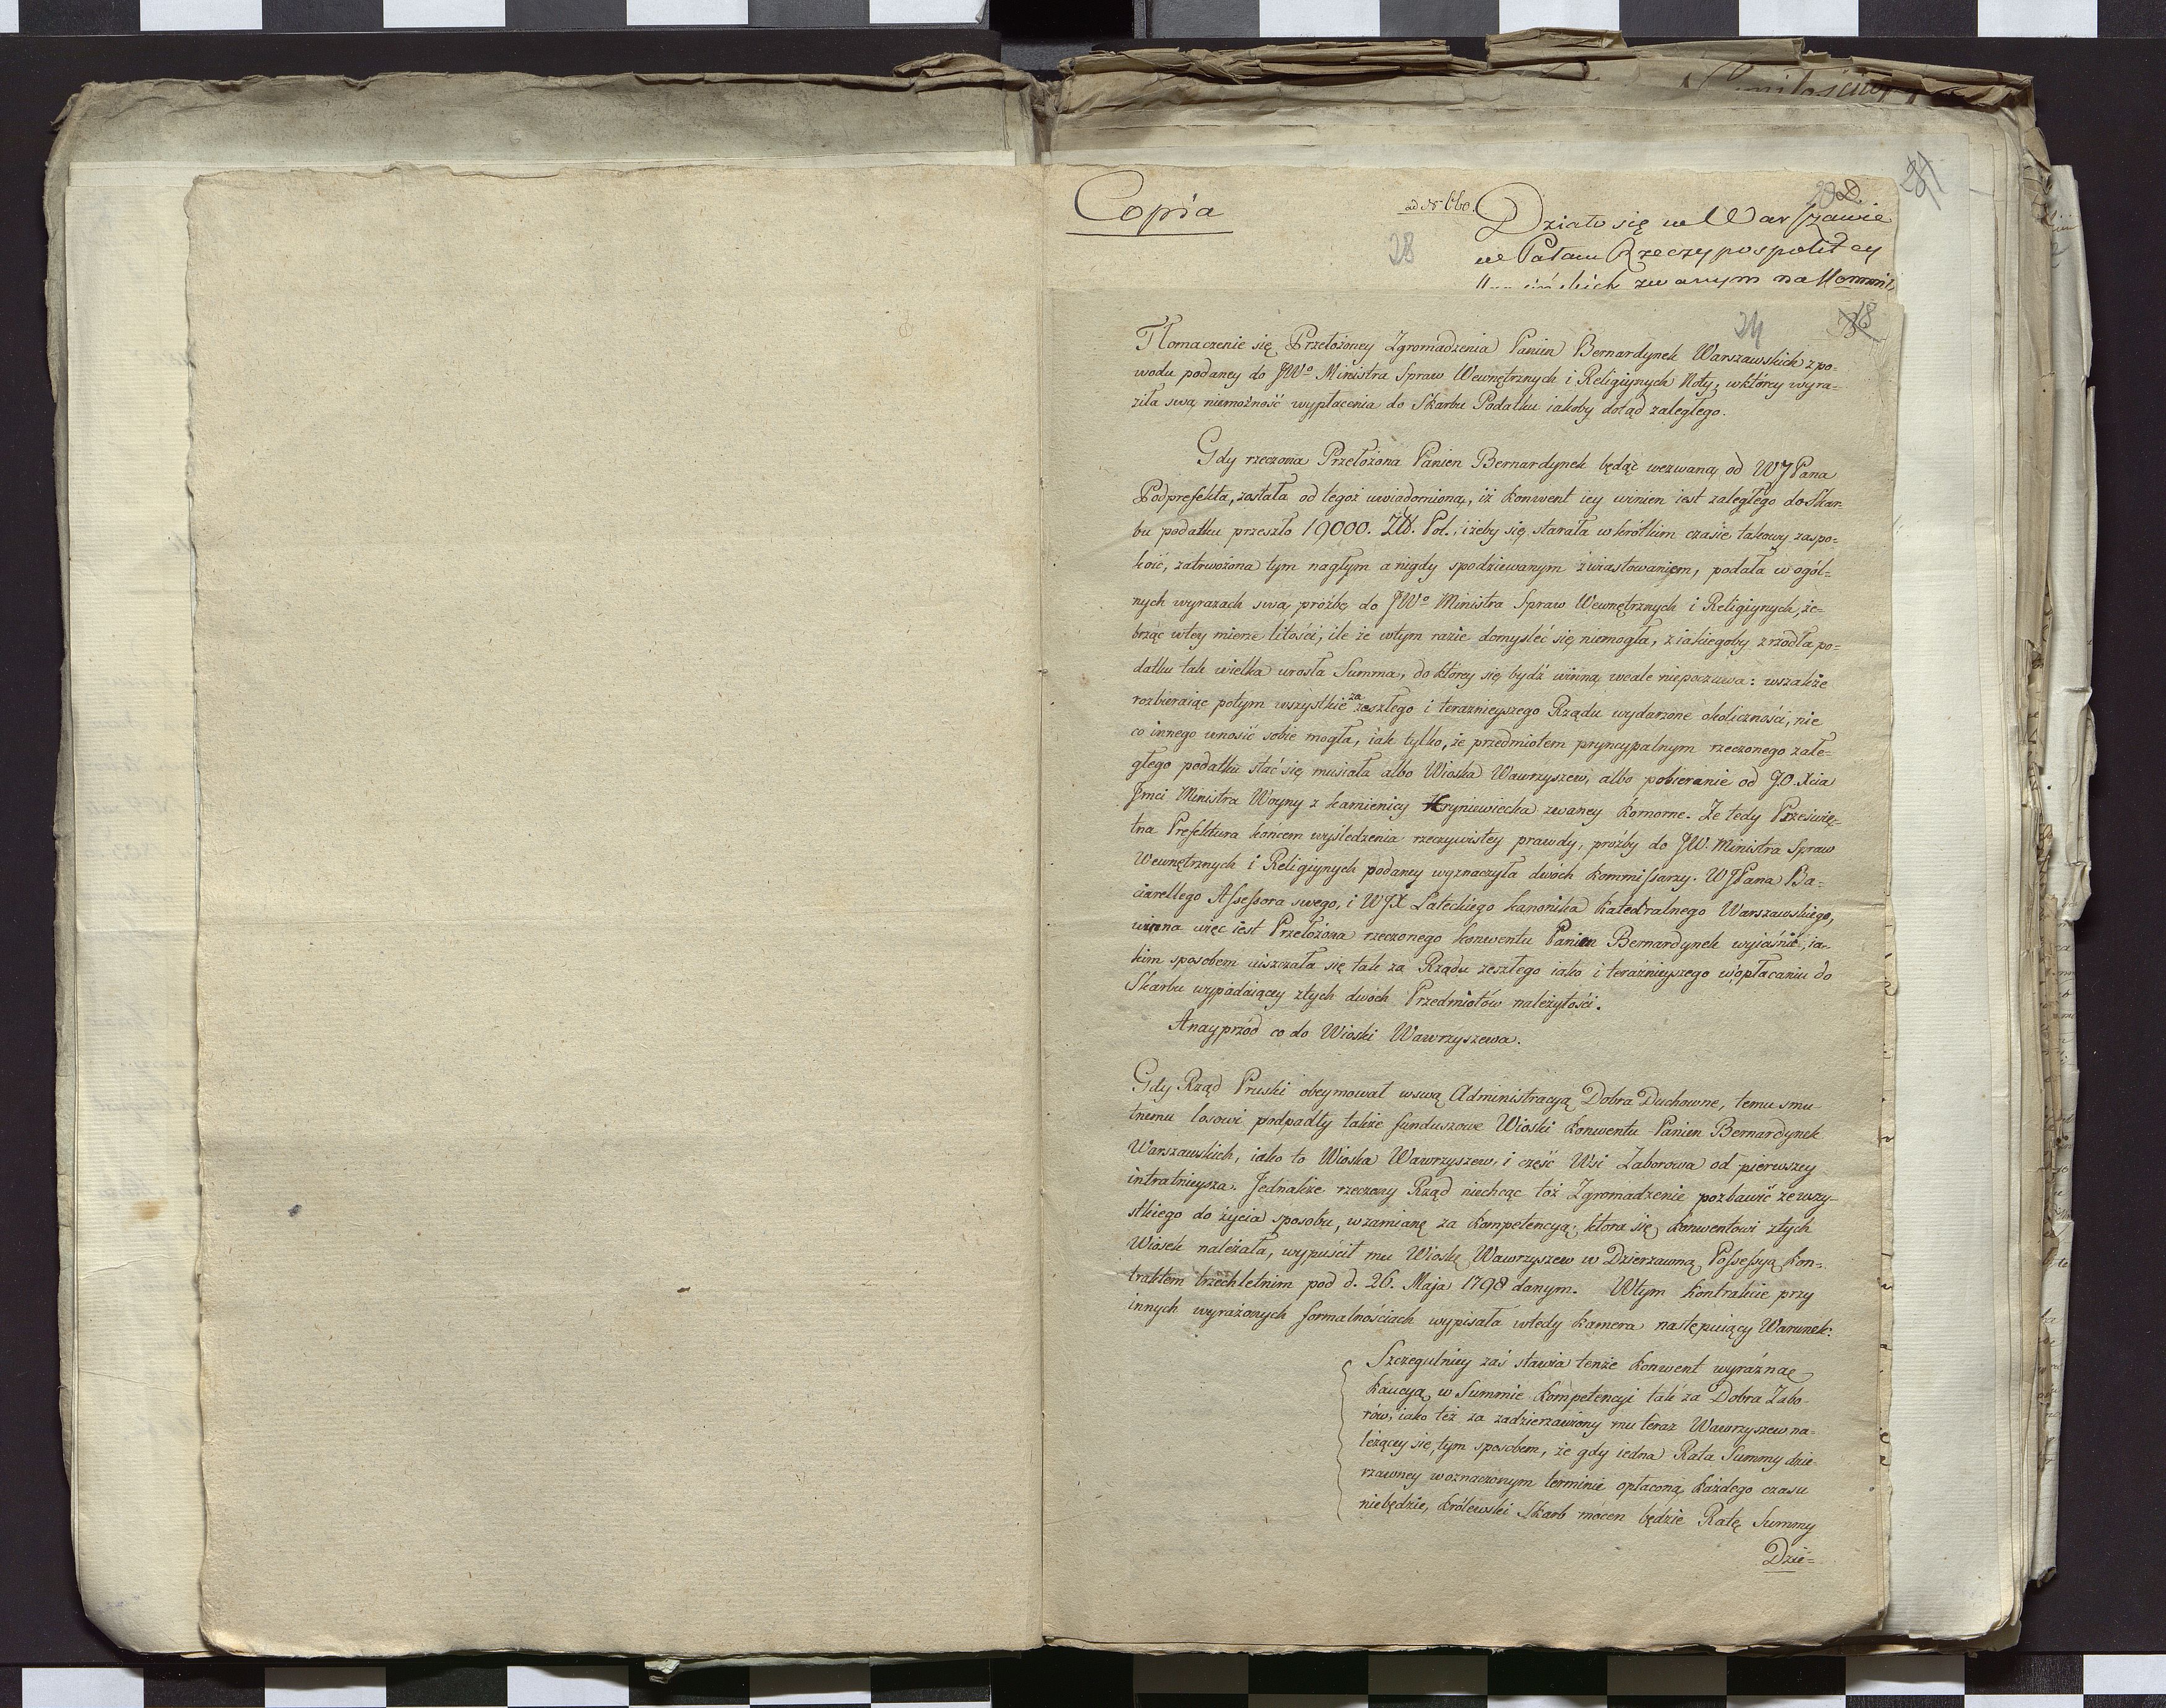 Copia
ad N 660.
28
Działo się w Warszawie
w Pałacu Rzeczypospolitey
zwanym na Kommis
24
Tłomaczenie się Przełożoney Zgromadzenia Panien Bernardynek Warszawskich z po=
wodu podaney do JWo Ministra Spraw Wewnętrznych i Religiynych Noty, w którey wyra=
ziła swą niemożność wypłacenia do Skarbu Podatku iakoby dotąd zaległego.
Gdy rzeczona Przełożona Panien Bernardynek będąc wezwaną od WJPana
Podprefekta, została od tegoż uwiadomioną, iż Konwent iey winien iest zaległego do Skar=
bu podatku przeszło 19000. Zł. Pol., iżeby się starała w krótkim czasie takowy zaspo=
koić, zatrwożona tym nagłym a nigdy spodziewanym zwiastowaniem, podała w ogól=
nych wyrazach swą próźbę do JWo Ministra Spraw Wewnętrznych i Religiynych, że=
brząc w tey mierze litości, ile że w tym razie domysleć się niemogła, z iakiegoby zrzodła po=
datku tak wielka urosła Summa, do którey się bydź winną wcale niepoczuwa: wszakże
rozbieraiąc potym wszystkie za zeszłego i teraznieyszego Rządu wydarzone okoliczności, nie
co innego wnosić sobie mogła, iak tylko, że przedmiotem pryncypalnym rzeczonego zale=
głego podatku stać się musiała albo Wioska Wawrzyszew, albo pobieranie od J.O. Xcia
Jmci Ministra Woyny z kamienicy Hryniewiecka zwaney Komorne. Że tedy Prześwię=
tna Prefektura końcem wyśledzenia rzeczywistey prawdy, proźby do JW. Ministra Spraw
Wewnętrznych i Religiynych podaney wyznaczyła dwóch Kommissarzy. WJPana Ba=
ciarellego Assessora swego, i WJX Lateckiego Kanonika Katedralnego Warszawskiego,
winna więc iest Przełożona rzeczonego konwentu Panien Bernardynek wyjaśnić, ia=
kim sposobem uiszczała się tak za Rządu zeszłego iako i teraźnieyszego w opłacaniu do
Skarbu wypadaiącey z tych dwóch Przedmiotów należytości.
A nayprzód co do Wioski Wawrzyszewa.
Gdy Rząd Pruski obeymował w swą Administracyą Dobra Duchowne, temu smu=
tnemu losowi podpadły także funduszowe Wioski Konwentu Panien Bernardynek
Warszawskich, iako to Wioska Wawrzyszew, i część Wsi Zaborowa od pierwszey
intratnieysza. Jednakże rzeczony Rząd niechcąc toż Zgromadzenie pozbawić ze wszy=
stkiego do życia sposobu, w zamianę za Kompetencyą, ktora się Konwentowi z tych
Wiosek należała, wypuścił mu Wioskę Wawrzyszew w Dzierzawną Possessyą Kon=
traktem trzechletnim pod d. 26. Maja 1798 danym. W tym Kontrakcie przy
innych wyrażonych formalnościach wypisała wtedy Kamera następuiący Warunek:
Szczegulniey zaś stawia tenże Konwent wyraźnąę
Kaucyą w Summie Kompetencyi tak za Dobra Zabo=
rów, iako też za zadzierzawiony mu teraz Wawrzyszew na=
leżącey się, tym sposobem, że gdy iedna Rata Summy dzie=
rzawney w oznaczonym terminie opłaconą każdego czasu
niebędzie, Królewski Skarb mocen będzie Ratę Summy
Dzie=